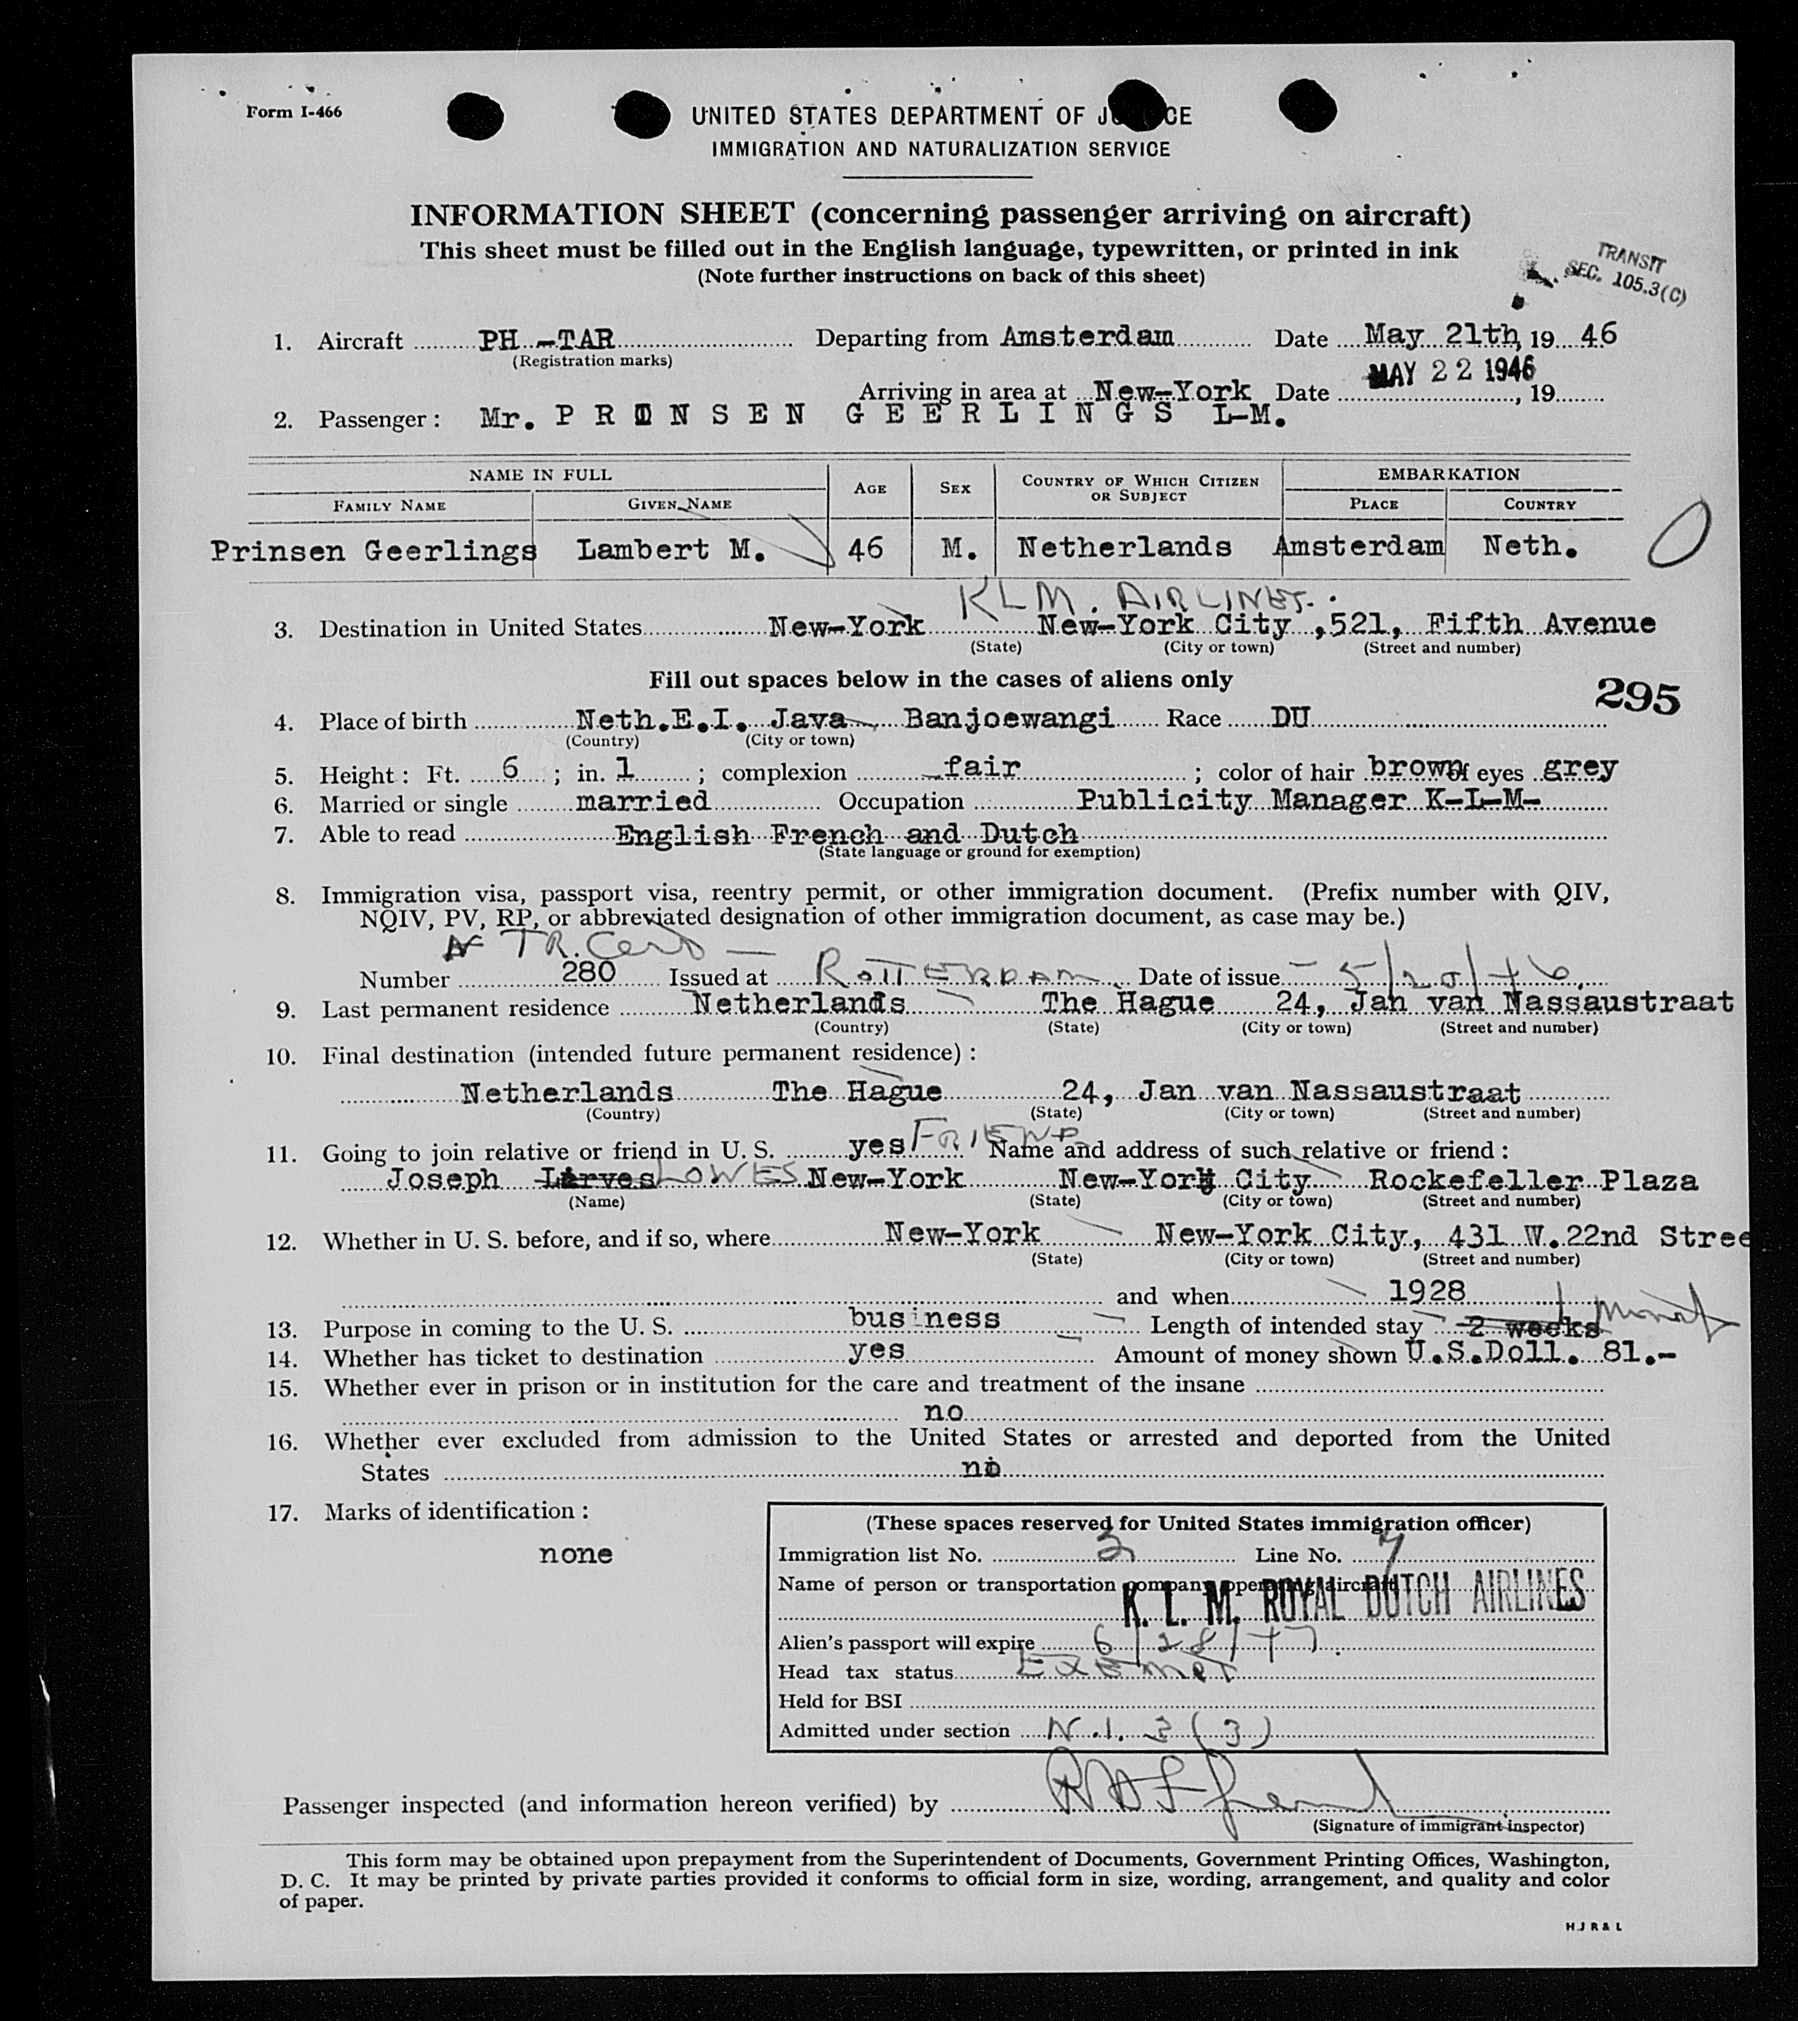 Form I-466
UNITED STATES DEPARTMENT OF JUSTICE
IMMIGRATION AND NATURALIZATION SERVICE
INFORMATION SHEET (concerning passenger arriving on aircraft)
This sheet must be filled out in the English language, typewritten, or printed in ink
(Note further instructions on back of this sheet)
TRANSIT
SEC. 105.3(C)
1. Aircraft PH -TAR Departing from Amsterdam Date May 21th, 19 46
(Registration marks)
MAY 22 1946
Arriving in area at New-York Date , 19
2. Passenger: Mr. PRINSEN GEERLINGS L-M.
NAME IN FULL AGE SEX COUNTRY OF WHICH CITIZEN OR SUBJECT EMBARKATION
FAMILY NAME GIVEN NAME PLACE COUNTRY
Prinsen Geerlings Lambert M. 46 M. Netherlands Amsterdam Neth. 0
KLM. AIRLINES.
3. Destination in United States New-York New-York City ,521, Fifth Avenue
(State) (City or town) (Street and number)
Fill out spaces below in the cases of aliens only
295
4. Place of birth Neth.E.I. Java Banjoewangi Race DU
(Country) (City or town)
5. Height: Ft. 6 ; in. 1 ; complexion fair ; color of hair brown of eyes grey
6. Married or single married Occupation Publicity Manager K-L-M-
7. Able to read English French and Dutch
(State language or ground for exemption)
8. Immigration visa, passport visa, reentry permit, or other immigration document. (Prefix number with QIV,
NQIV, PV, RP, or abbreviated designation of other immigration document, as case may be.)
TR. Cert —
Number 280 Issued at ROTTERDAM Date of issue 5/20/46.
9. Last permanent residence Netherlands The Hague 24, Jan van Nassaustraat
(Country) (State) (City or town) (Street and number)
10. Final destination (intended future permanent residence):
Netherlands The Hague 24, Jan van Nassaustraat
(Country) (State) (City or town) (Street and number)
11. Going to join relative or friend in U. S. yes FRIEND Name and address of such relative or friend:
Joseph LOWES New-York New-York City Rockefeller Plaza
(Name) (State) (City or town) (Street and number)
12. Whether in U. S. before, and if so, where New-York New-York City, 431 W.22nd Stree
(State) (City or town) (Street and number)
and when 1928
13. Purpose in coming to the U. S. business Length of intended stay 2 weeks 1 month
14. Whether has ticket to destination yes Amount of money shown U.S.Doll. 81.-
15. Whether ever in prison or in institution for the care and treatment of the insane
no
16. Whether ever excluded from admission to the United States or arrested and deported from the United
States no
17. Marks of identification:
none
(These spaces reserved for United States immigration officer)
Immigration list No. 3 Line No. 7
Name of person or transportation company operating aircraft
K. L. M. ROYAL DUTCH AIRLINES
Alien's passport will expire 6/28/47.
Head tax status EXEMPT
Held for BSI
Admitted under section N.I. 3 (3)
Passenger inspected (and information hereon verified) by
(Signature of immigrant inspector)
This form may be obtained upon prepayment from the Superintendent of Documents, Government Printing Offices, Washington,
D. C. It may be printed by private parties provided it conforms to official form in size, wording, arrangement, and quality and color
of paper.
H J R & L